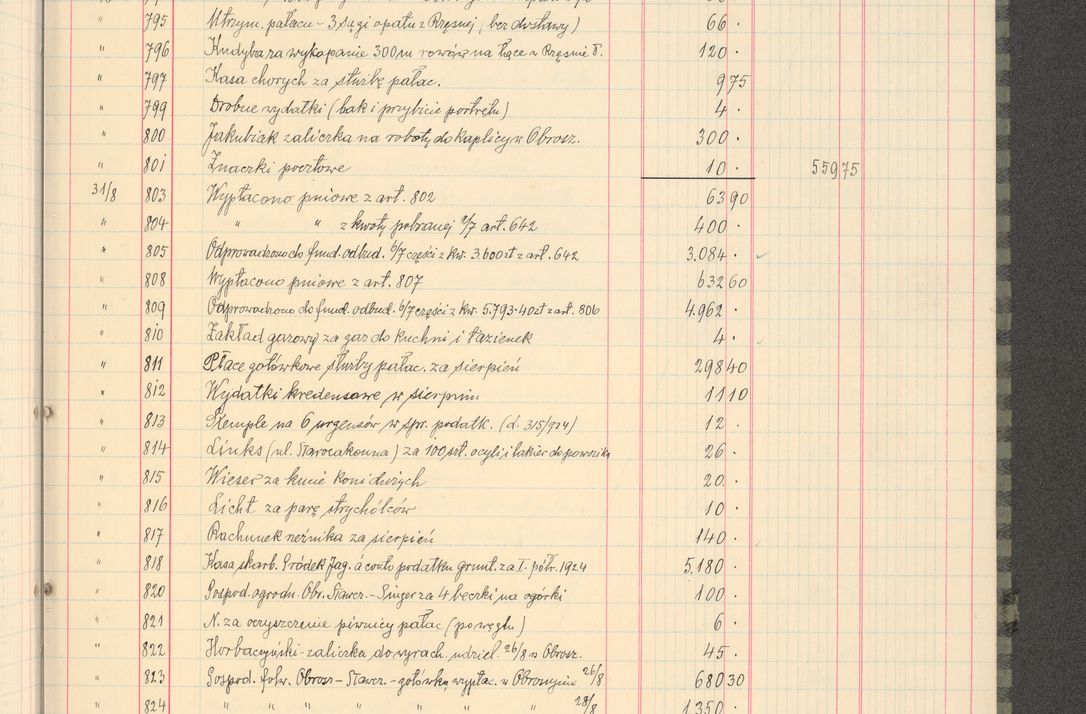 " 795 Utrzym. pałacu - 3 sągi opału z Rzęsnej (bez dostawy) 66 ·
" 796 Kndyba za wykopanie 300 m rowów na łące w Rzęśnie 120 ·
" 797 Kasa chorych za służbę pałac. 9 75
" 799 Drobne wydatki (lak i przybicie portretu) 4 ·
" 800 Jakubiak zaliczka na roboty do kaplicy w Obrosz. 300 ·
" 801 Znaczki pocztowe 10 · 559 75
31/8 803 Wypłacono pniowe z art. 802 63 90
" 804 " " z kwoty pobranej 9/7 art. 642 400 ·
" 805 Odprowadzono do fund. odbud. 6/7 części z kw. 3.600 zł z art. 642 3.084 ·
" 808 Wypłacono pniowe z art. 807 632 60
" 809 Odprowadzono do fund. odbud. 6/7 części z kw. 5.793·40 zł z art. 806 4.962 ·
" 810 Zakład gazowy za gaz do kuchni i łazienek 4 ·
" 811 Płace gotówkowe służby pałac. za sierpień 298 40
" 812 Wydatki kredensowe w sierpniu 11 10
" 813 Stemple na 6 urgensów w spr. podatk. (L. 315/924) 12 ·
" 814 Links (ul. ) za 100 szt. ocyli i lakier do powozika 26 ·
" 815 Wieser za kucie koni dużych 20 ·
" 816 Licht za parę strychólców 10 ·
" 817 Rachunek rzeźnika za sierpień 140 ·
" 818 Kasa skarb. Gródek Jag. á conto podatku grunt. za I. półr. 1924 5.180 ·
" 820 Gospod. ogrodn. Obr. Stawcz. - Singer za 4 beczki na ogórki 100 ·
" 821 N. za oczyszczenie piwnicy pałac (po węglu) 6 ·
" 822 Horbaczyński - zaliczka do wyrach. udziel. 26/8 w Obrosz. 45 ·
" 823 Gospod. folw. Obrosz - Stawcz. - gotówką wypłac. w Obroszynie 26/8 680 30
" 824 " " " " " " " 28/8 1.350 ·